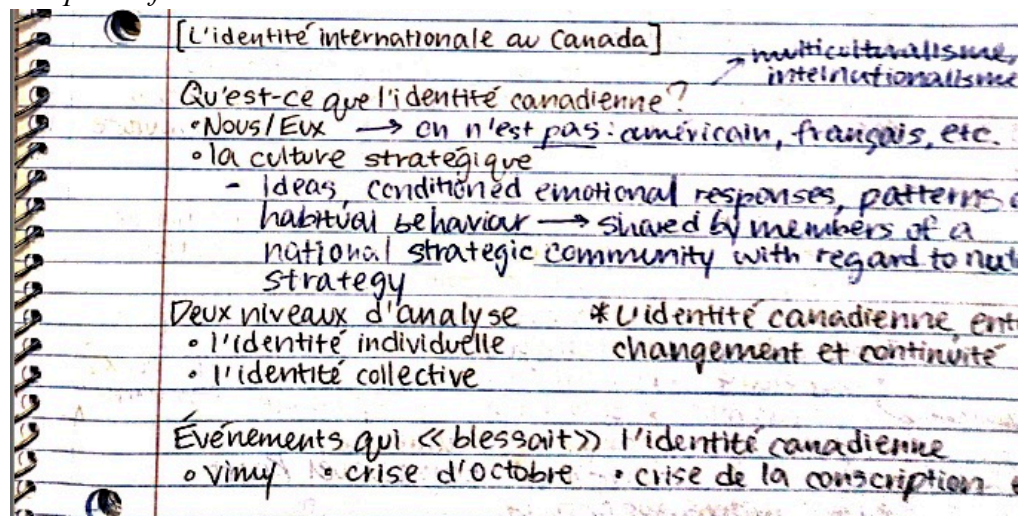 [L'identité internationale au Canada]
multiculturalisme,
internationalisme
Qu'est-ce que l'identité canadienne?
•Nous/Eux → on n'est pas: américain, français, etc.
•la culture stratégique
- Ideas, conditioned emotional responses, patterns
habitual behaviour → shared by members of a
national strategic community with regard to
strategy
Deux niveaux d'analyse *L'identité canadienne
• l'identité individuelle changement et continuité
• l'identité collective
Événements qui << blessait>> l'identité canadienne
• Vimy • crise d'octobre • crise de la conscription